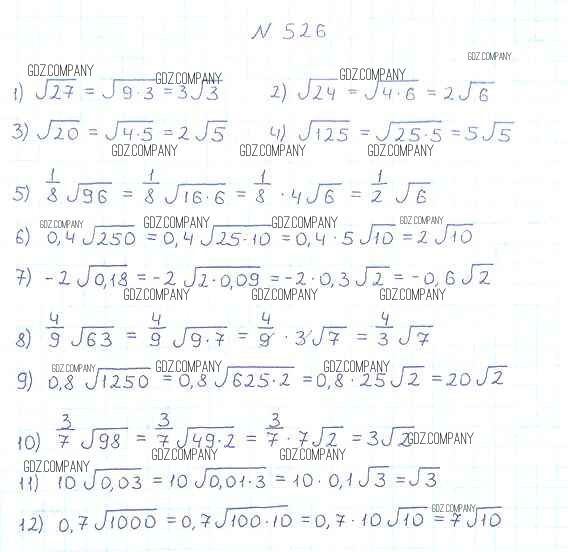 N 526
GDZ.COMPANY
GDZ.COMPANY GDZ.COMPANY GDZ.COMPANY
1) √27 = √9·3 = 3√3 2) √24 = √4·6 = 2√6
3) √20 = √4·5 = 2√5 4) √125 = √25·5 = 5√5
GDZ.COMPANY GDZ.COMPANY GDZ.COMPANY
5) 1/8 √96 = 1/8 √16·6 = 1/8 · 4√6 = 1/2 √6
GDZ.COMPANY GDZ.COMPANY GDZ.COMPANY GDZ.COMPANY
6) 0,4√250 = 0,4√25·10 = 0,4·5√10 = 2√10
7) -2√0,18 = -2√2·0,09 = -2·0,3√2 = -0,6√2
GDZ.COMPANY GDZ.COMPANY GDZ.COMPANY
8) 4/9 √63 = 4/9 √9·7 = 4/9 · 3√7 = 4/3 √7
GDZ.COMPANY GDZ.COMPANY GDZ.COMPANY
9) 0,8√1250 = 0,8√625·2 = 0,8·25√2 = 20√2
10) 3/7 √98 = 3/7 √49·2 = 3/7 · 7√2 = 3√2 GDZ.COMPANY
GDZ.COMPANY GDZ.COMPANY GDZ.COMPANY
11) 10√0,03 = 10√0,01·3 = 10·0,1√3 = √3
GDZ.COMPANY
12) 0,7√1000 = 0,7√100·10 = 0,7·10√10 = 7√10